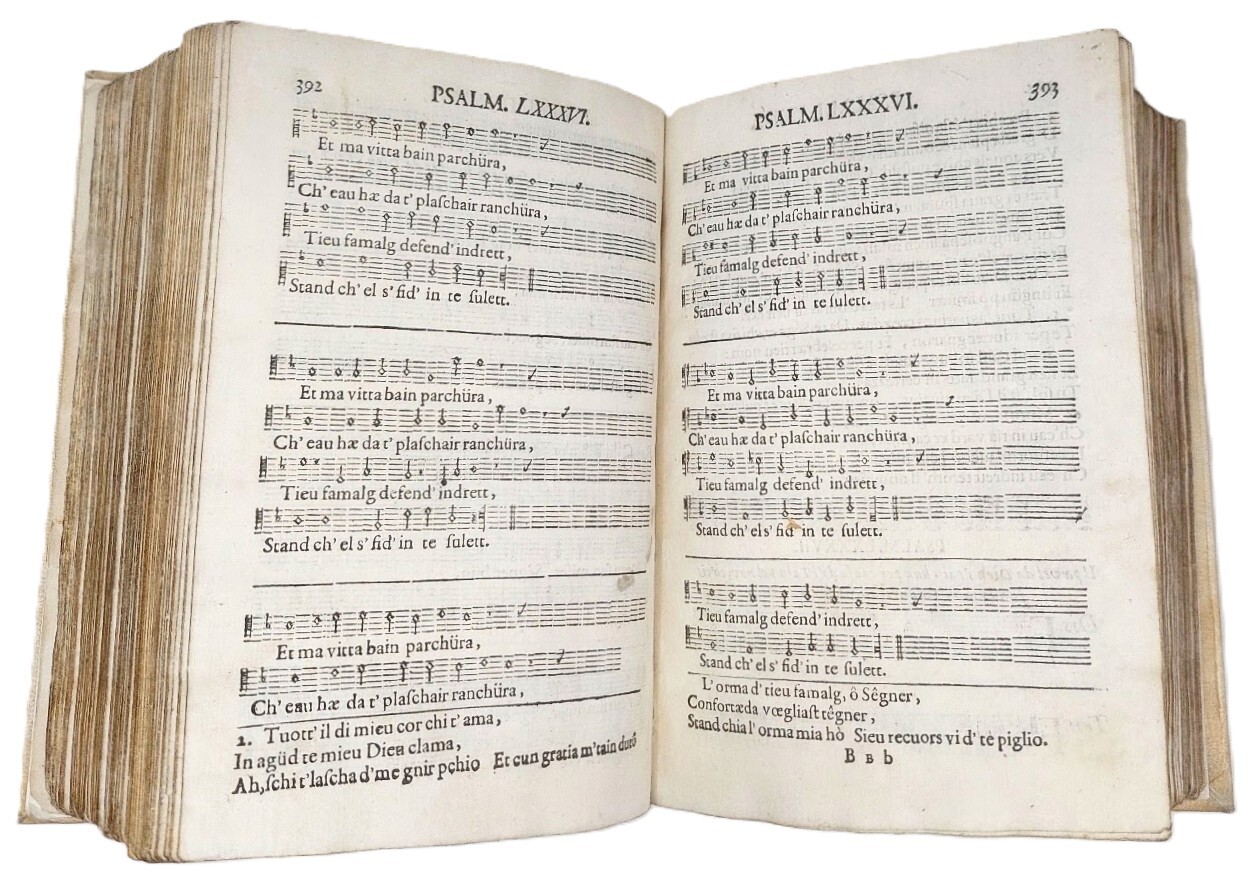 392
PSALM. LXXXVI.
Et ma vitta bain parchüra,
Ch' eau hæ da t' plaſchair ranchüra,
Tieu famalg defend' indrett,
Stand ch' el s' fid' in te ſulett.
Et ma vitta bain parchüra,
Ch' eau hæ da t' plaſchair ranchüra,
Tieu famalg defend' indrett,
Stand ch' el s' fid' in te ſulett.
Et ma vitta bain parchüra,
Ch' eau hæ da t' plaſchair ranchüra,
2. Tuott' il di mieu cor chi t' ama,
In agüd te mieu Dieu clama,
Ah, ſchi t' laſcha d' me gnir pchio Et cun gratia m' tain
PSALM. LXXXVI.
393
Et ma vitta bain parchüra,
Ch' eau hæ da t' plaſchair ranchüra,
Tieu famalg defend' indrett,
Stand ch' el s' fid' in te ſulett.
Et ma vitta bain parchüra,
Ch' eau hæ da t' plaſchair ranchüra,
Tieu famalg defend' indrett,
Stand ch' el s' fid' in te ſulett.
Tieu famalg defend' indrett,
Stand ch' el s' fid' in te ſulett.
L' orma d' tieu famalg, ô Sêgner,
Confortæda vœgliaſt têgner,
Stand chia l' orma mia hò Sieu recuors vi d' te piglio.
B B b